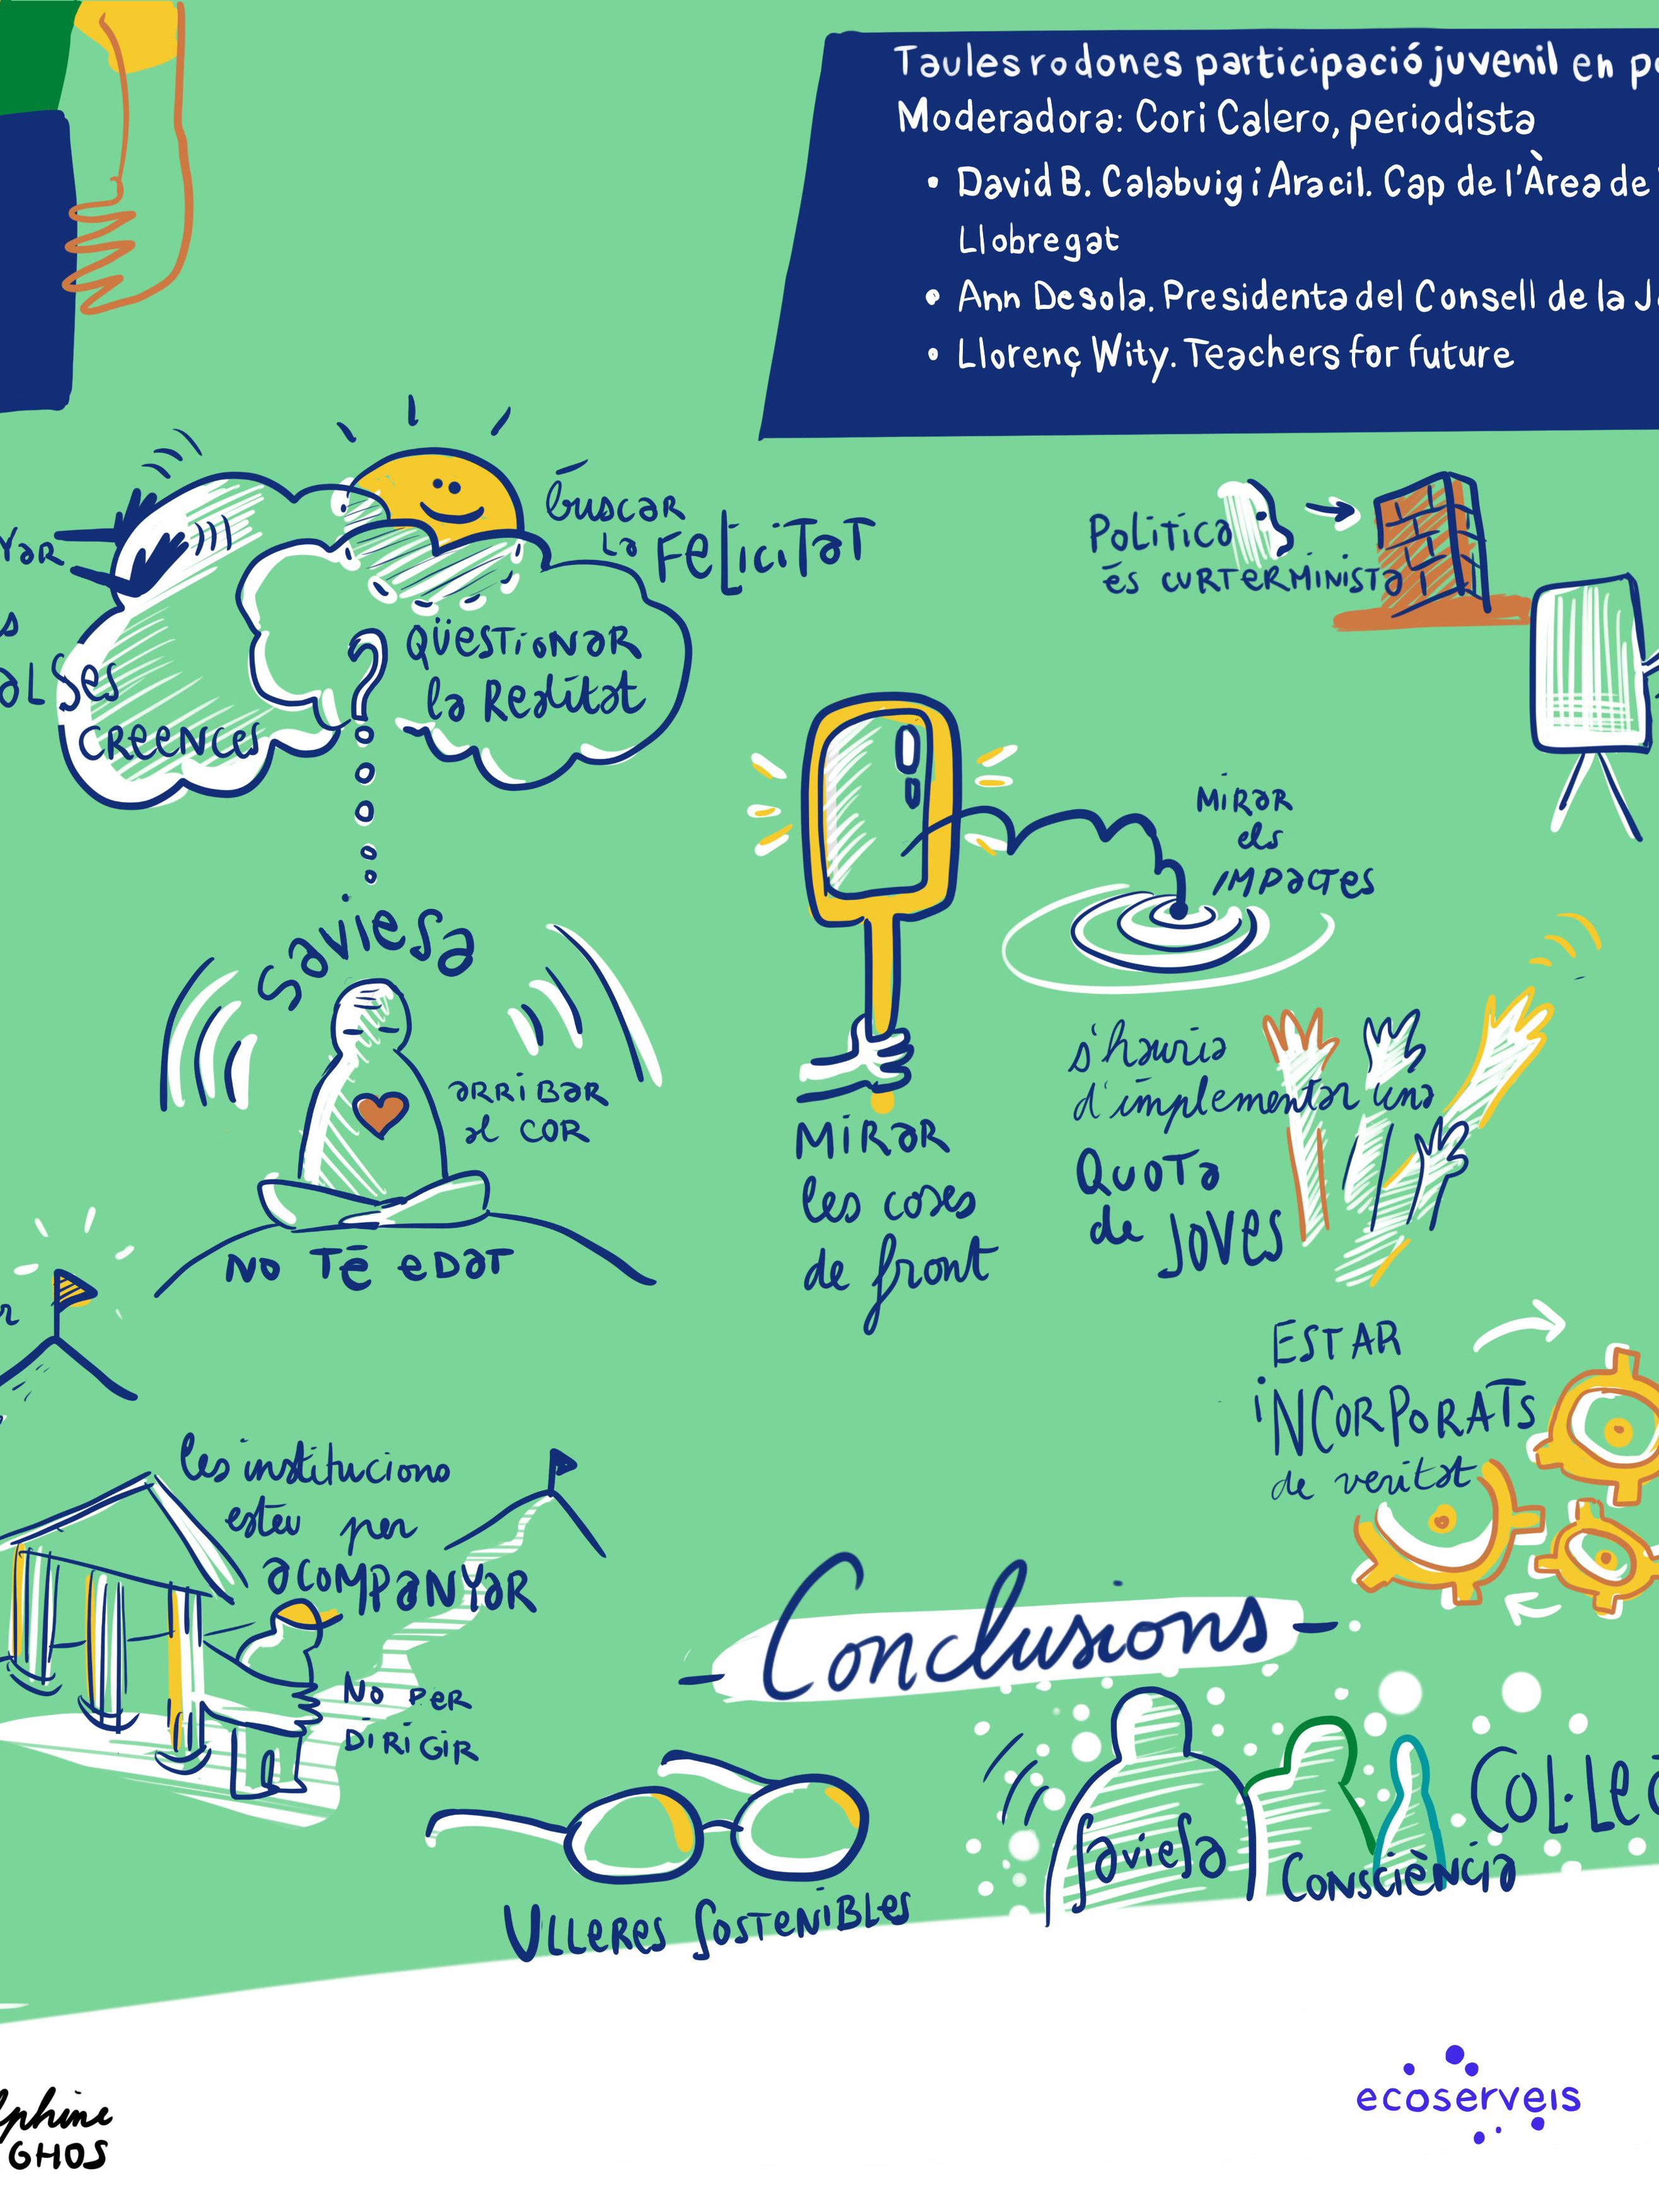 Taules rodones participació juvenil en po
Moderadora: Cori Calero, periodista
• David B. Calabuig i Aracil. Cap de l'Àrea de
Llobregat
• Ann Desola. Presidenta del Consell de la J
• Llorenç Wity. Teachers for future
buscar
la FELICITAT
QÜESTIONAR
la Realitat
YAR
S
ALSES
CREENCES
Saviesa
ARRIBAR
al COR
NO TÉ EDAT
POLÍTICA
ÉS CURTERMINISTA
MIRAR
els
IMPACTES
MIRAR
les coses
de front
s'hauria
d'implementar una
QUOTA
de JOVES
ESTAR
INCORPORATS
de veritat
les institucions
esteu per
ACOMPANYAR
NO PER
DIRIGIR
Conclusions
ULLERES SOSTENIBLES
Saviesa
CONSCIÈNCIA
COL·LE
lphine
GHOS
ecoserveis